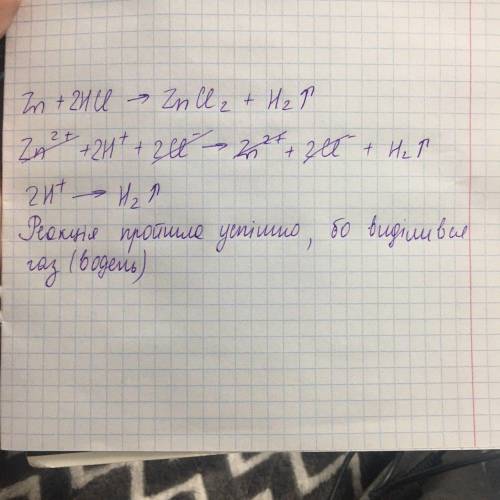 Zn + 2HCl → ZnCl₂ + H₂↑
Zn²⁺ + 2H⁺ + 2Cl⁻ → Zn²⁺ + 2Cl⁻ + H₂↑
2H⁺ → H₂↑
Реакція пройшла успішно, бо виділився
газ (водень)